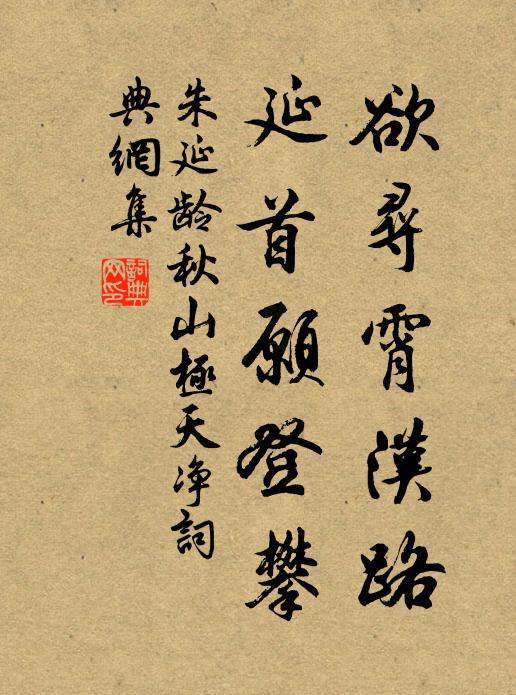 欲尋霄漢路
延首願登攀
朱延龄秋山極天净詞
典網集
詞典
网印